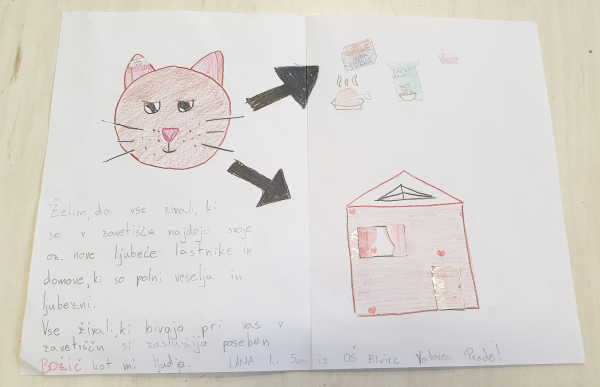 Želim, da vse živali, ki
so v zavetišču najdejo svoje
oz. nove ljubeče lastnike in
domove, ki so polni veselja in
ljubezni.
Vse živali, ki bivajo pri vas v
zavetišču si zaslužijo poseben
BOŽIČ, kot mi ljudje.
LANA L. 5.a iz OŠ Elvire Vatovec Prade!